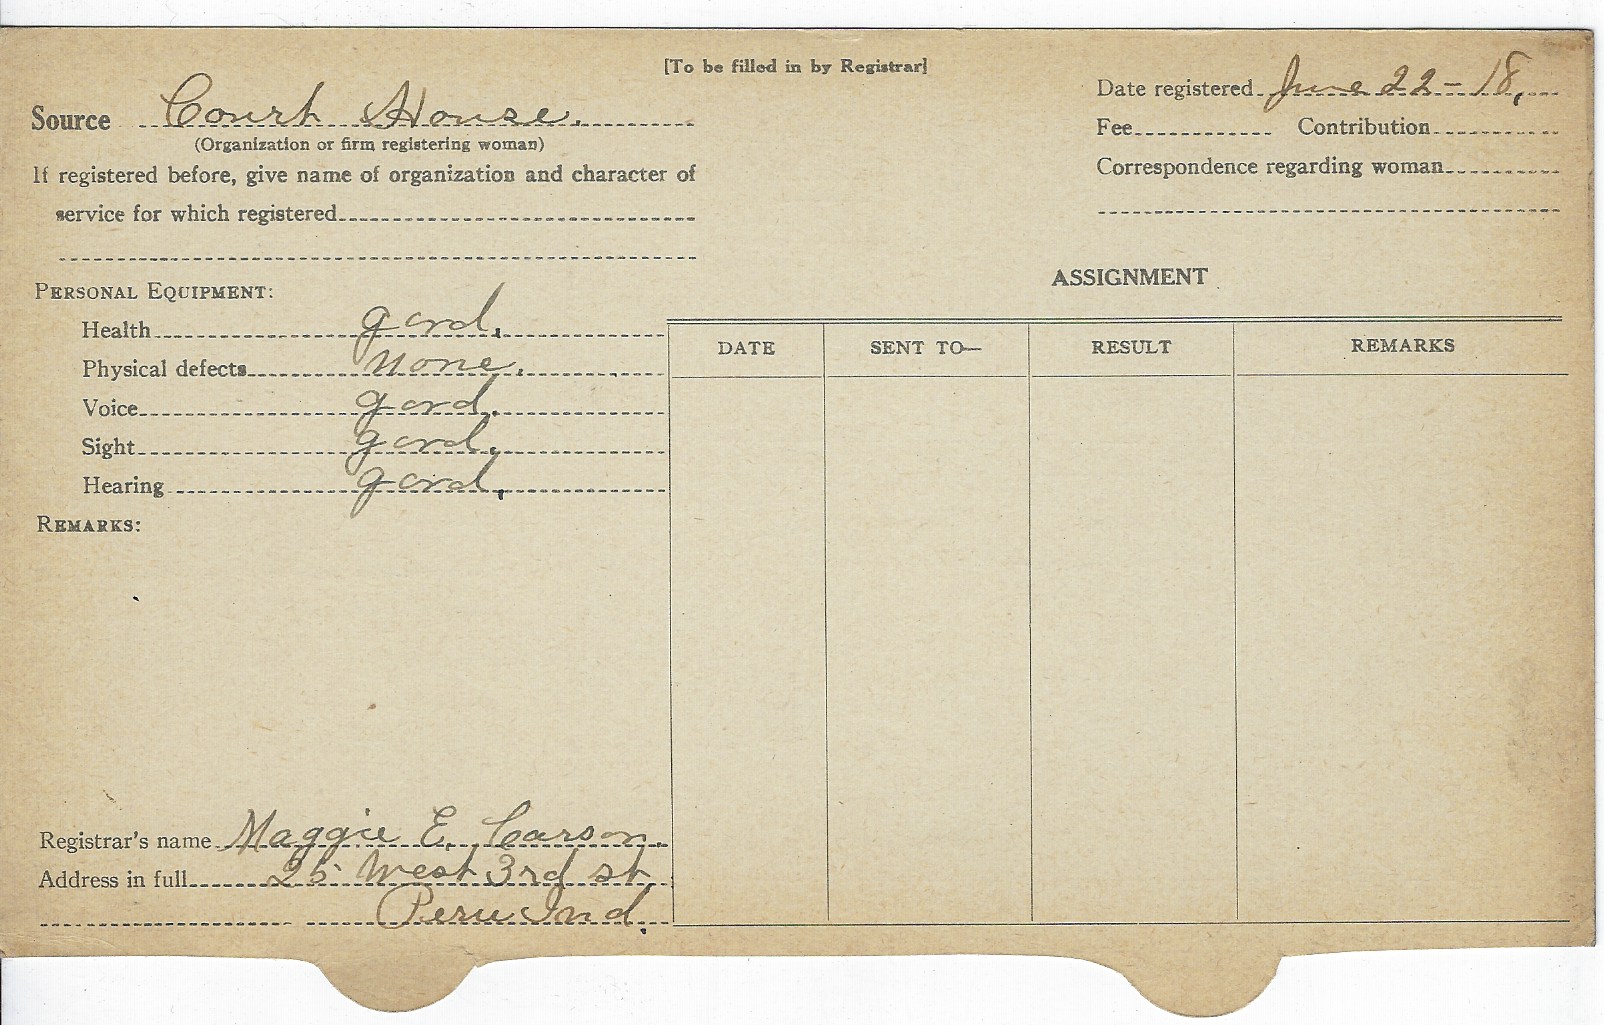 [To be filled in by Registrar]
Source Court House.
(Organization or firm registering woman)
If registered before, give name of organization and character of
service for which registered
Date registered June 22-18,
Fee Contribution
Correspondence regarding woman
PERSONAL EQUIPMENT:
Health good.
Physical defects none.
Voice good.
Sight good.
Hearing good.
REMARKS:
ASSIGNMENT
DATE SENT TO— RESULT REMARKS
Registrar's name Maggie E. Carson.
Address in full 25 West 3rd st
Peru Ind.